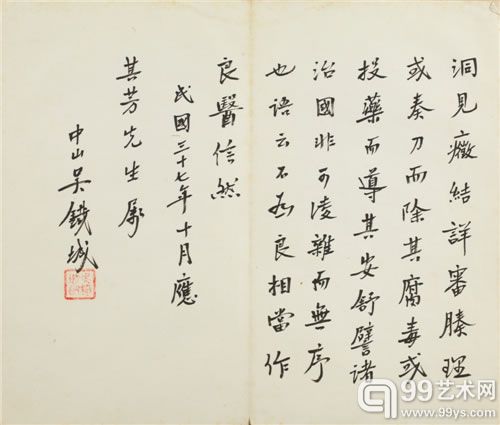 洞見癥結詳審腠理
或奏刀而除其腐毒或
投藥而導其安舒譬諸
治國非可淩雜而無序
也語云不為良相當作
良醫信然
民國三十七年十月應
其芳先生屬
中山吳鐵城
99艺术网
www.99ys.com